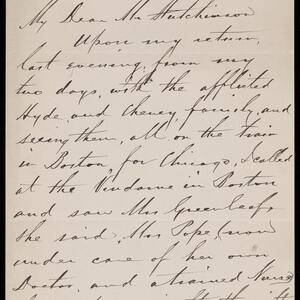 My Dear Mr Hutchinson
Upon my return,
last evening, from my
two days, with the afflicted
Hyde, and Cheney, family, and
seeing them, all on the train
in Boston for Chicago, I called
at the "Vendome" in Boston
and saw Mrs Greenleaf,
she said, Mrs Pope, (now
under care of her own
Doctor, and a trained Nurse)